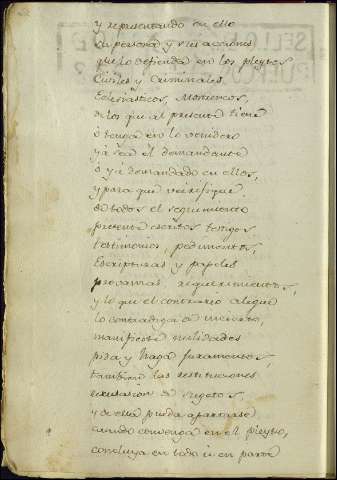 y representando en ello
su persona y sus acciones
que lo defienda en los pleytos
Civiles y Criminales,
Eclesiasticos, Mostrencos,
de los que al presente tiene
ò tenga en lo venidero
yá sea él demandante
ò yá demandado en ellos,
y para que verifique
de todos el seguimiento
presente escritos testigos
testimonios, pedimentos,
Escripturas y papeles
probanzas, requerimientos,
y lo que el contrario alegue
lo contradiga de incierto,
manifieste nulidades
pida y haga juramentos,
tambien las restituciones
recusacion de sugetos
y de ella pueda apartarse
cuando convenga en el pleyto,
concluya en todo ù en parte
SELLO
PUERTO